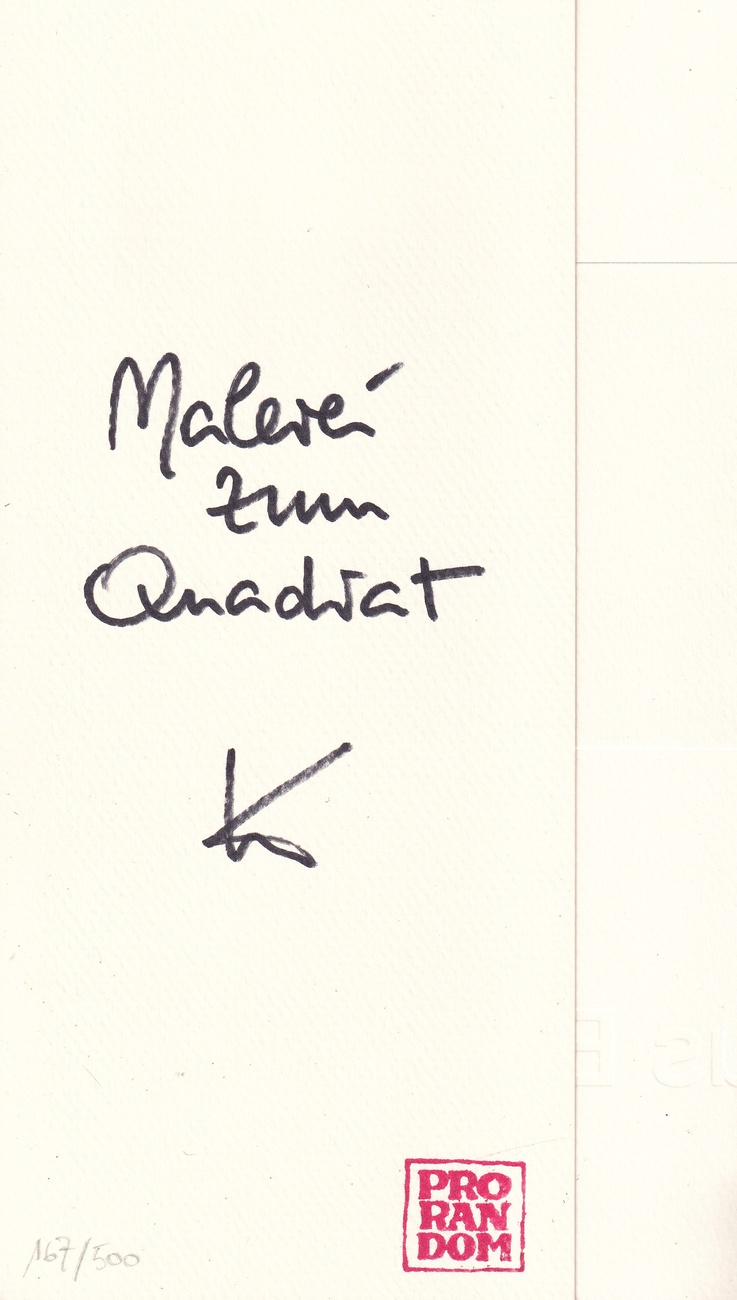 Malerei
zum
Quadrat
K
167/500
PRO
RAN
DOM